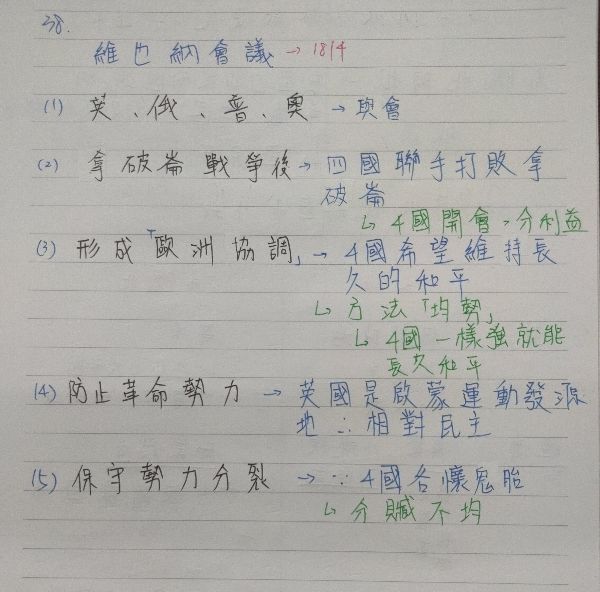 38.
維也納會議→1814
(1) 英、俄、普、奧→與會
(2) 拿破崙戰爭後→四國聯手打敗拿
破崙
↳4國開會,分利益
(3) 形成「歐洲協調」→4國希望維持長
久的和平
↳方法「均勢」
↳4國一樣強就能
長久和平
(4) 防止革命勢力→英國是啟蒙運動發源
地∴相對民主
(5) 保守勢力分裂→∵4國各懷鬼胎
↳分贓不均